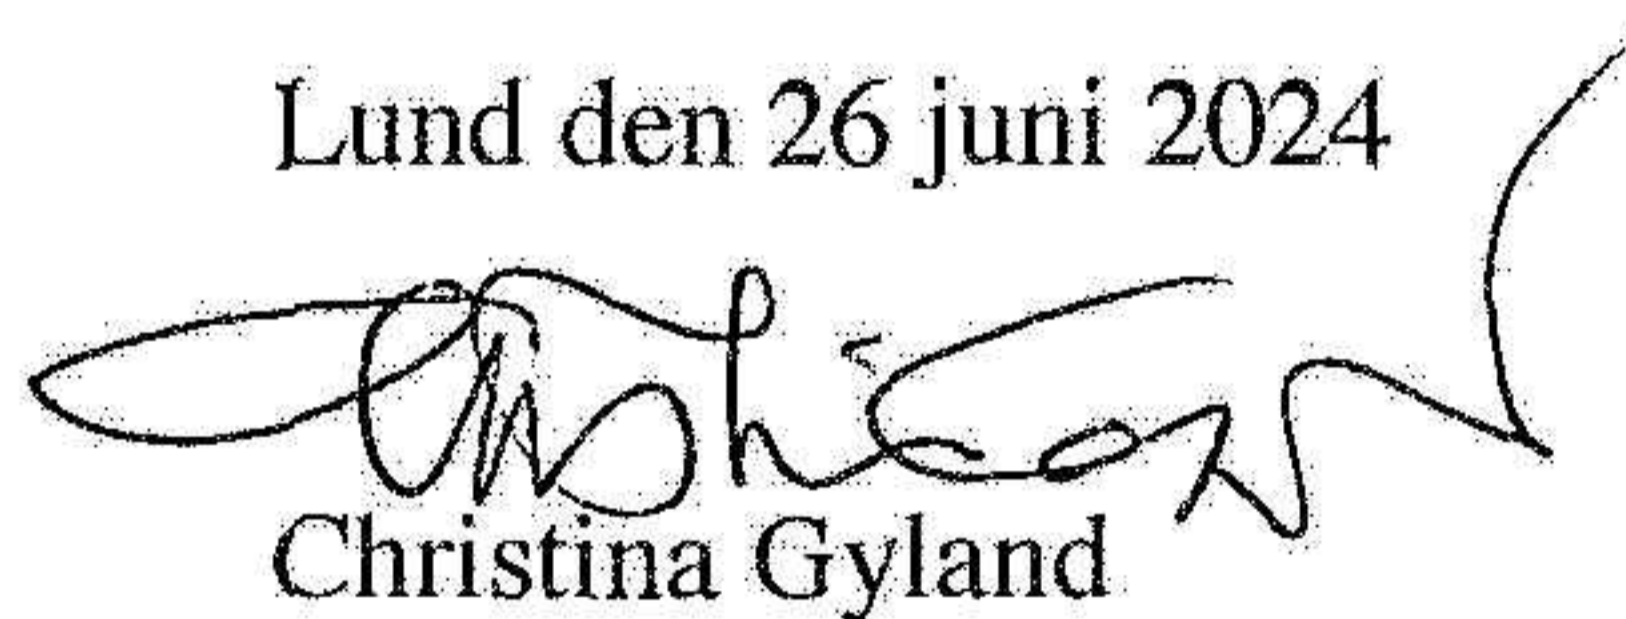 Lund den 26 juni 2024
Christina Gyland